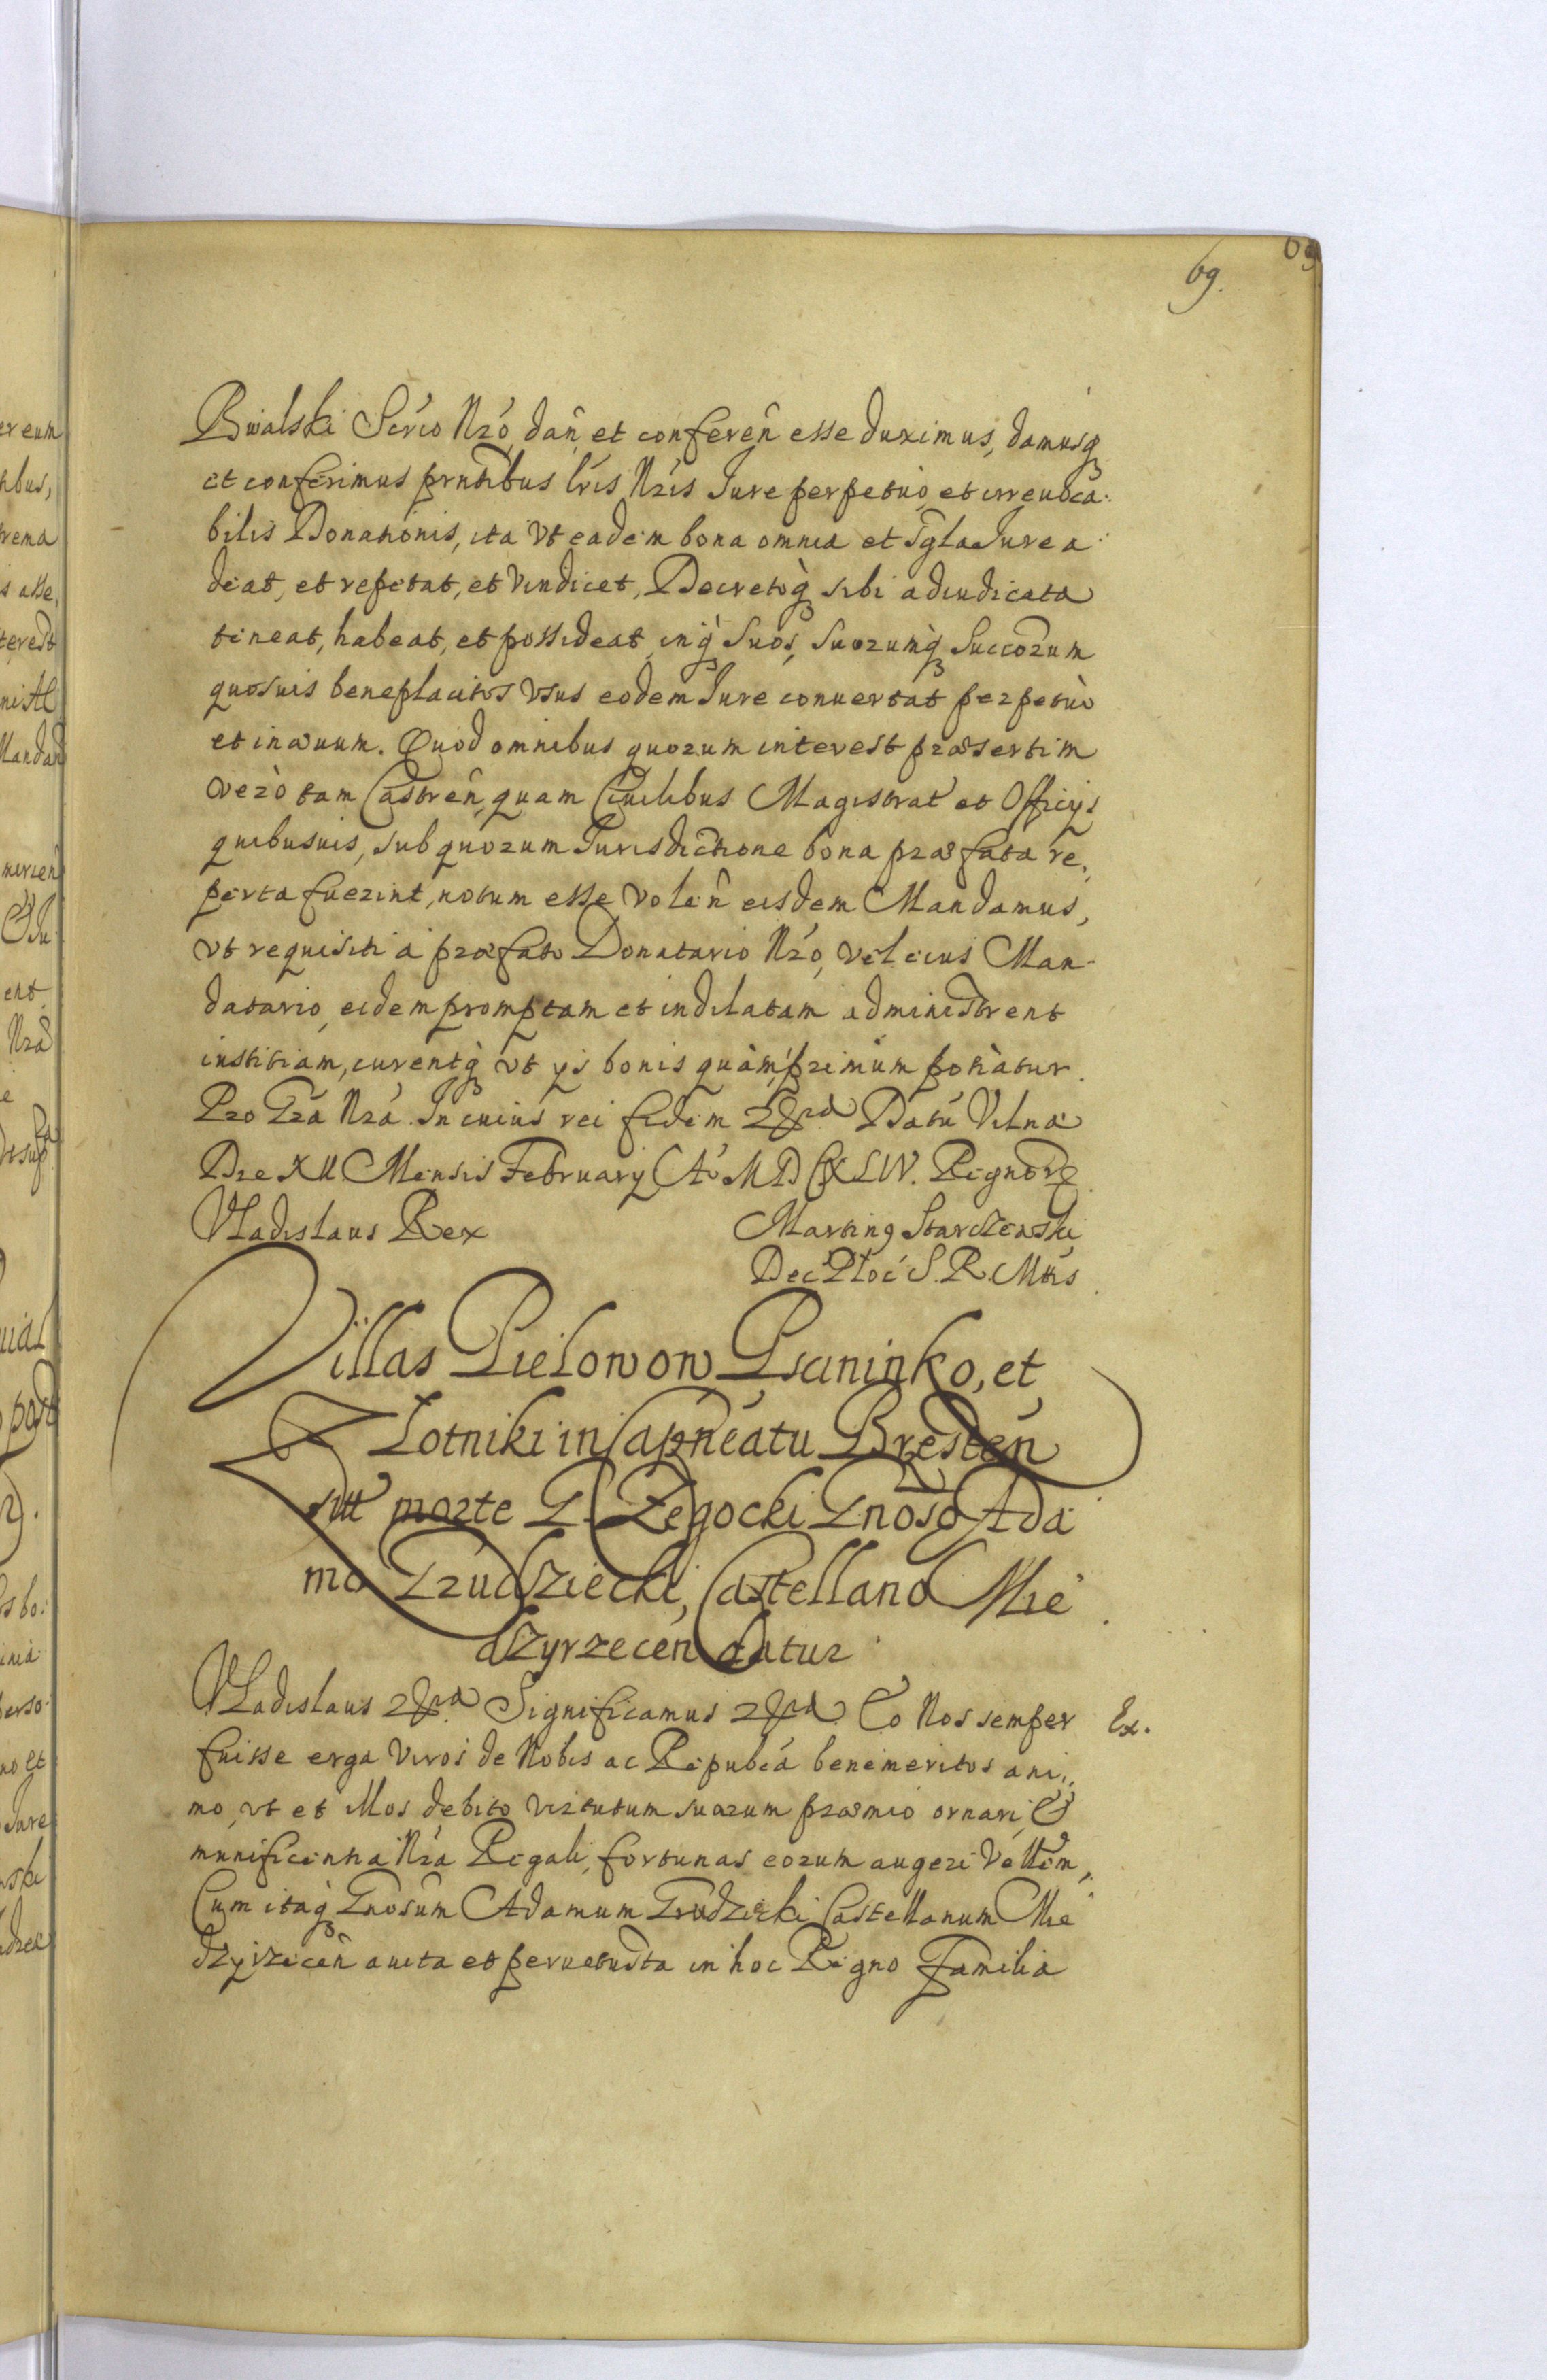 69.
69
Rwalski Servo Nró, dañ et confereñ esse duximus, damusq́
et conferimus prntibus lris Nris Jure perpetuò, et irreuoca:
bilis Donationis, ita Vt eadem bona omnia et sgla Jure a
deat, et repetat, et Vindicet, Decretoq́ sibi adiudicata
teneat, habeat, et possideat, inq́ suos, suorumq́ Succorum
quosuis beneplacitos Vsus eodem Jure conuertat perpetuò
et in æuum. Quod omnibus quorum interest præsertim
verò tam Castreñ, quam Ciuilibus Magistrat et Officijs
quibusuis, sub quorum Jurisdictione bona præfata re,,
perta fuerint, notum esse Voleñ eisdem Mandamus,
vt requisiti á præfato Donatario Nró, Vel eius Man-
datario, eidem promptam et indilatam administrent
iustitiam, curentq́ vt ijs bonis quàm primùm potiatur.
Pro Gra Nra. In cuius rei fidem &ra Datú Vilnæ
Die XII Mensis February Aº MDCXLIV. Regnor &
Vladislaus Rex
Martin9 Starczewski
Dec Płoc S. R. Mtis
Villas Pielowow Psaninko, et
Złotniki in Capneatu Bresteñ
Zegocki Gnoso Ada
mo Grudziecki, Castellano Mie
dzyrzeceñ datur
Vladislaus &ra Significamus &ra. Eo Nos semper
Ex.
fuisse erga Viros de Nobis ac Repubca benemeritos ani,,
mo, vt et illos debito Virtutum suarum præmio ornari, &
munificentia Nra Regali, fortunas eorum augeri Vellem,,
Cum itaq́ Gnosum Adamum Grudziecki Castellanum Mie
dzyrzeceñ auita et peruetusta in hoc Regno Familia